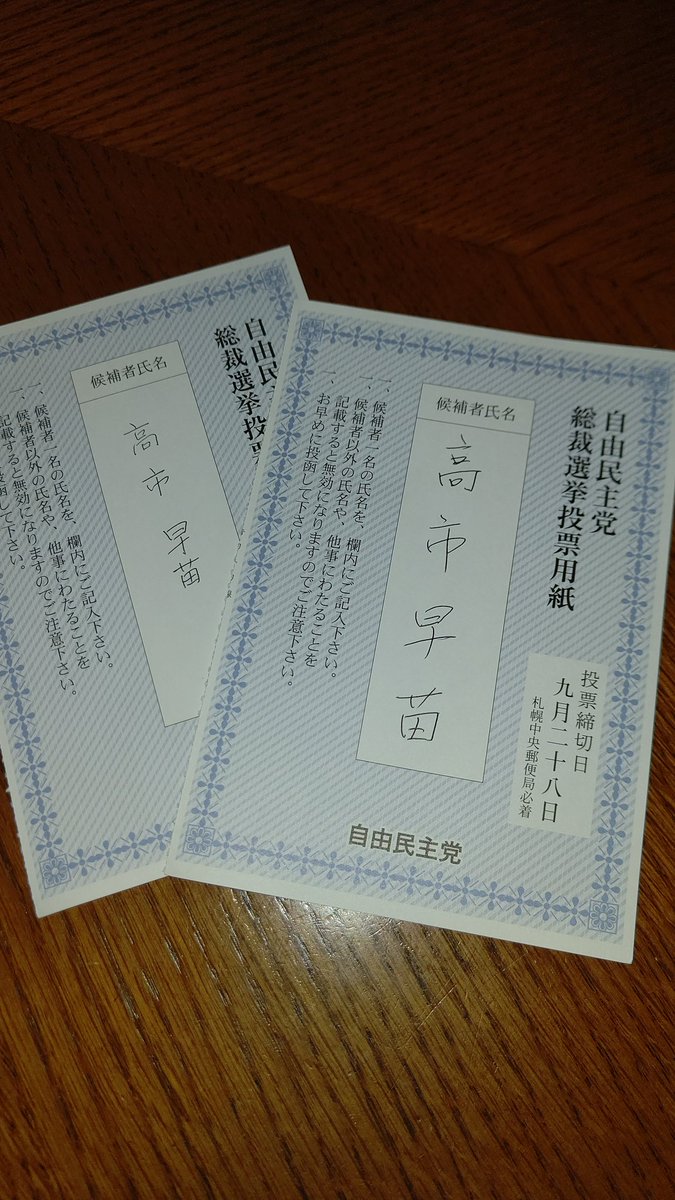 自由民主党
総裁選挙投票用紙
投票締切日
九月二十八日
札幌中央郵便局必着
候補者氏名
高市早苗
一、候補者一名の氏名を、欄内にご記入下さい。
一、候補者以外の氏名や、他事にわたることを
記載すると無効になりますのでご注意下さい。
、お早めに投函して下さい。
自由民主党
自由民
総裁選挙投票
候補者氏名
高市早苗
一、候補者一名の氏名を、欄内にご記入下さい。
一、候補者以外の氏名や、他事にわたることを
記載すると無効になりますのでご注意下さい。
投函して下さい。